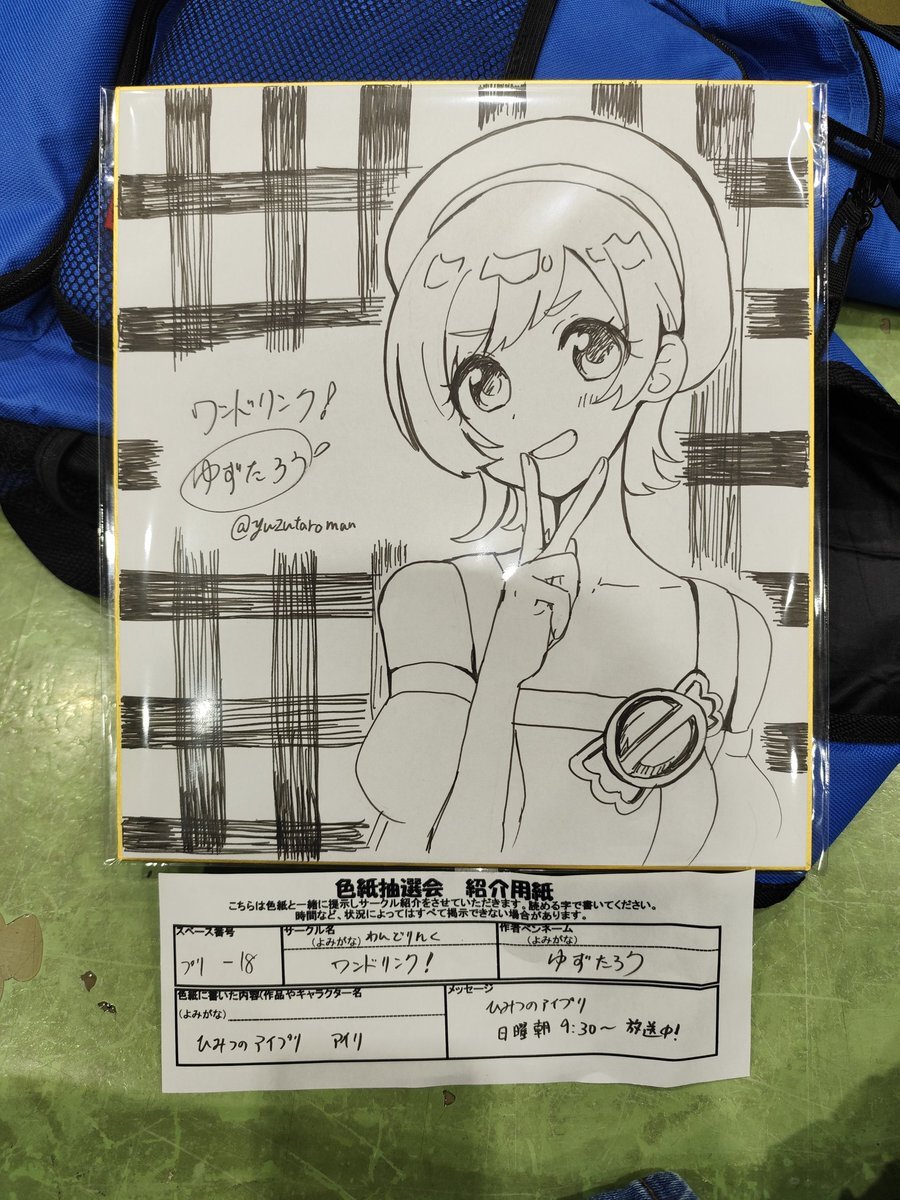 ワンドリンク!
ゆずたろう
@yuzutaroman
色紙抽選会 紹介用紙
こちらは色紙と一緒に提示しサークル紹介をさせていただきます。読める字で書いてください。
時間など、状況によってはすべて掲示できない場合があります。
スペース番号
プリ -18
サークル名
(よみがな) わんどりんく
ワンドリンク!
作者ペンネーム
(よみがな)
ゆずたろう
色紙に書いた内容(作品やキャラクター名
(よみがな)
ひみつのアイプリ アイリ
メッセージ
ひみつのアイプリ
日曜朝 9:30〜 放送中!